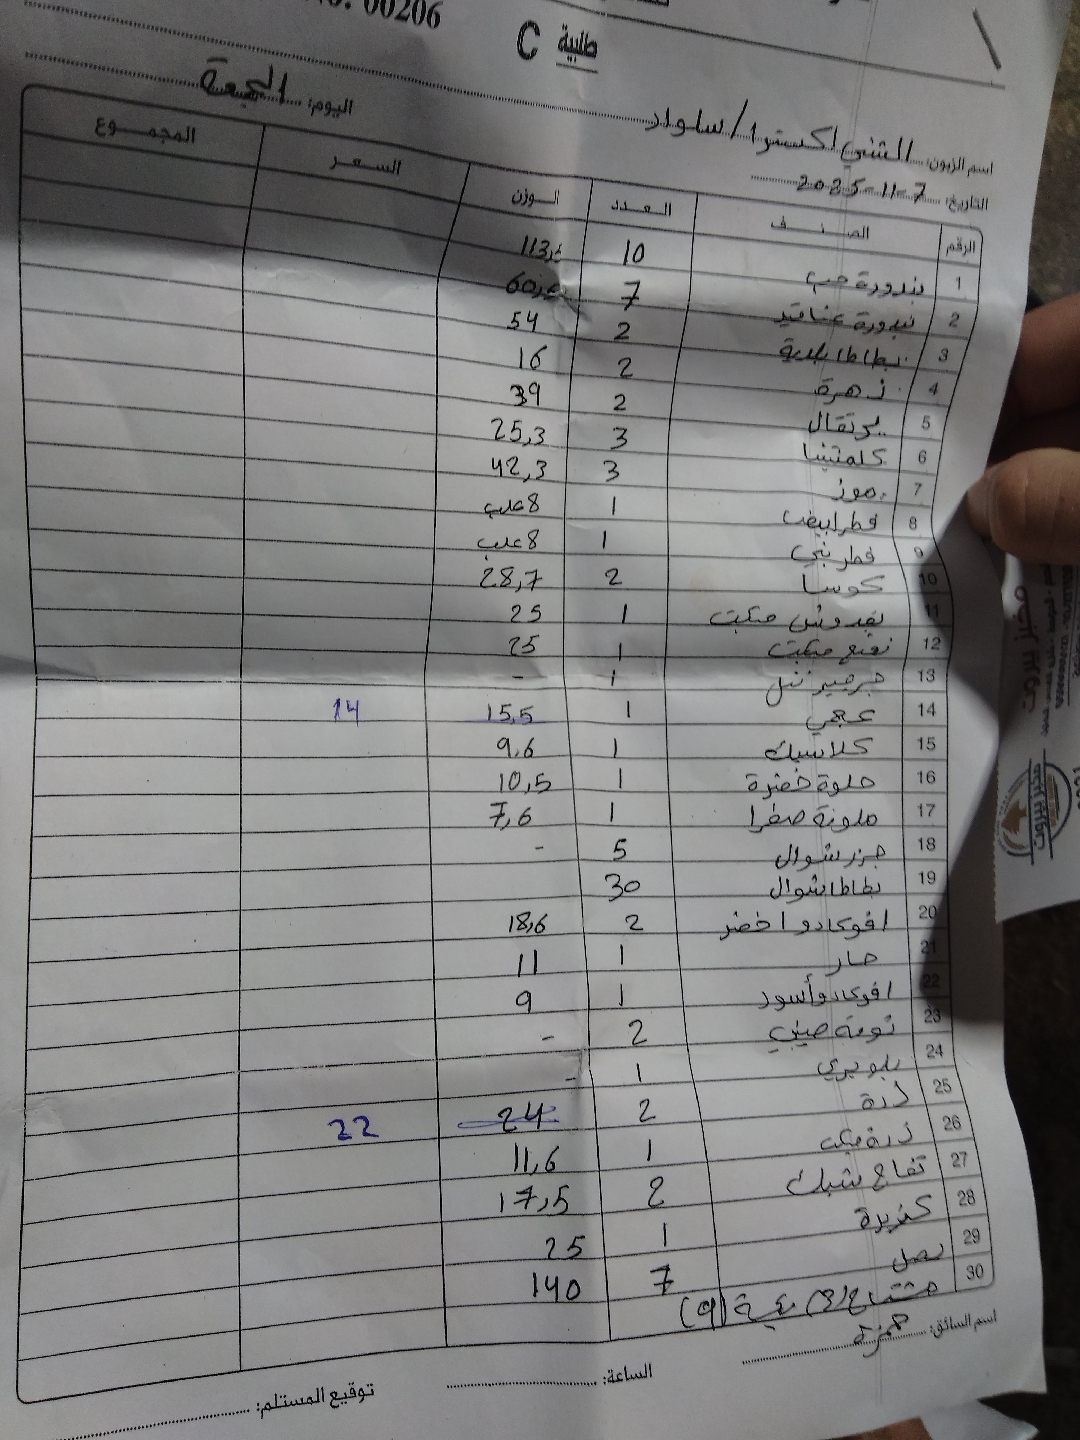 00206
طلبية C
اسم الزبون: الشني اكسترا / سلواد
اليوم: الجمعة
التاريخ: 7-11-2025
الرقم الصنف العدد الوزن السعر المجموع
1 بندورة حب 10 113,5
2 بندورة عناقيد 7
3 بطاطا بلدية 2 54
4 زهرة 2 16
5 برتقال 2 39
6 كلمنتينا 3 25,3
7 موز 3 42,3
8 فطر ابيض 1 8 علب
9 فطر بني 1 8 علب
10 كوسا 2 28,7
11 بقدونس مكبت 1 25
12 نعنع مكبت 1 25
13 جرجير نتل 1 -
14 عجمي 1 15,5 14
15 كلاسيك 1 9,6
16 حلوة خضرة 1 10,5
17 ملونة صفرا 1 7,6
18 جزر شوال 5 -
19 بطاطا شوال 30
20 افوكادو اخضر 2 18,6
21 حار 1 11
22 افوكادو أسود 1 9
23 ثومة صيني 2 -
24 بلوبيري 1 -
25 ذرة 2 24 22
26 1 11,6
27 تفاح شبك 2 17,5
28 كزبرة 1 25
29 بصل 7 140
30
اسم السائق: حمزة
الساعة:
توقيع المستلم:
مخبز بيروت